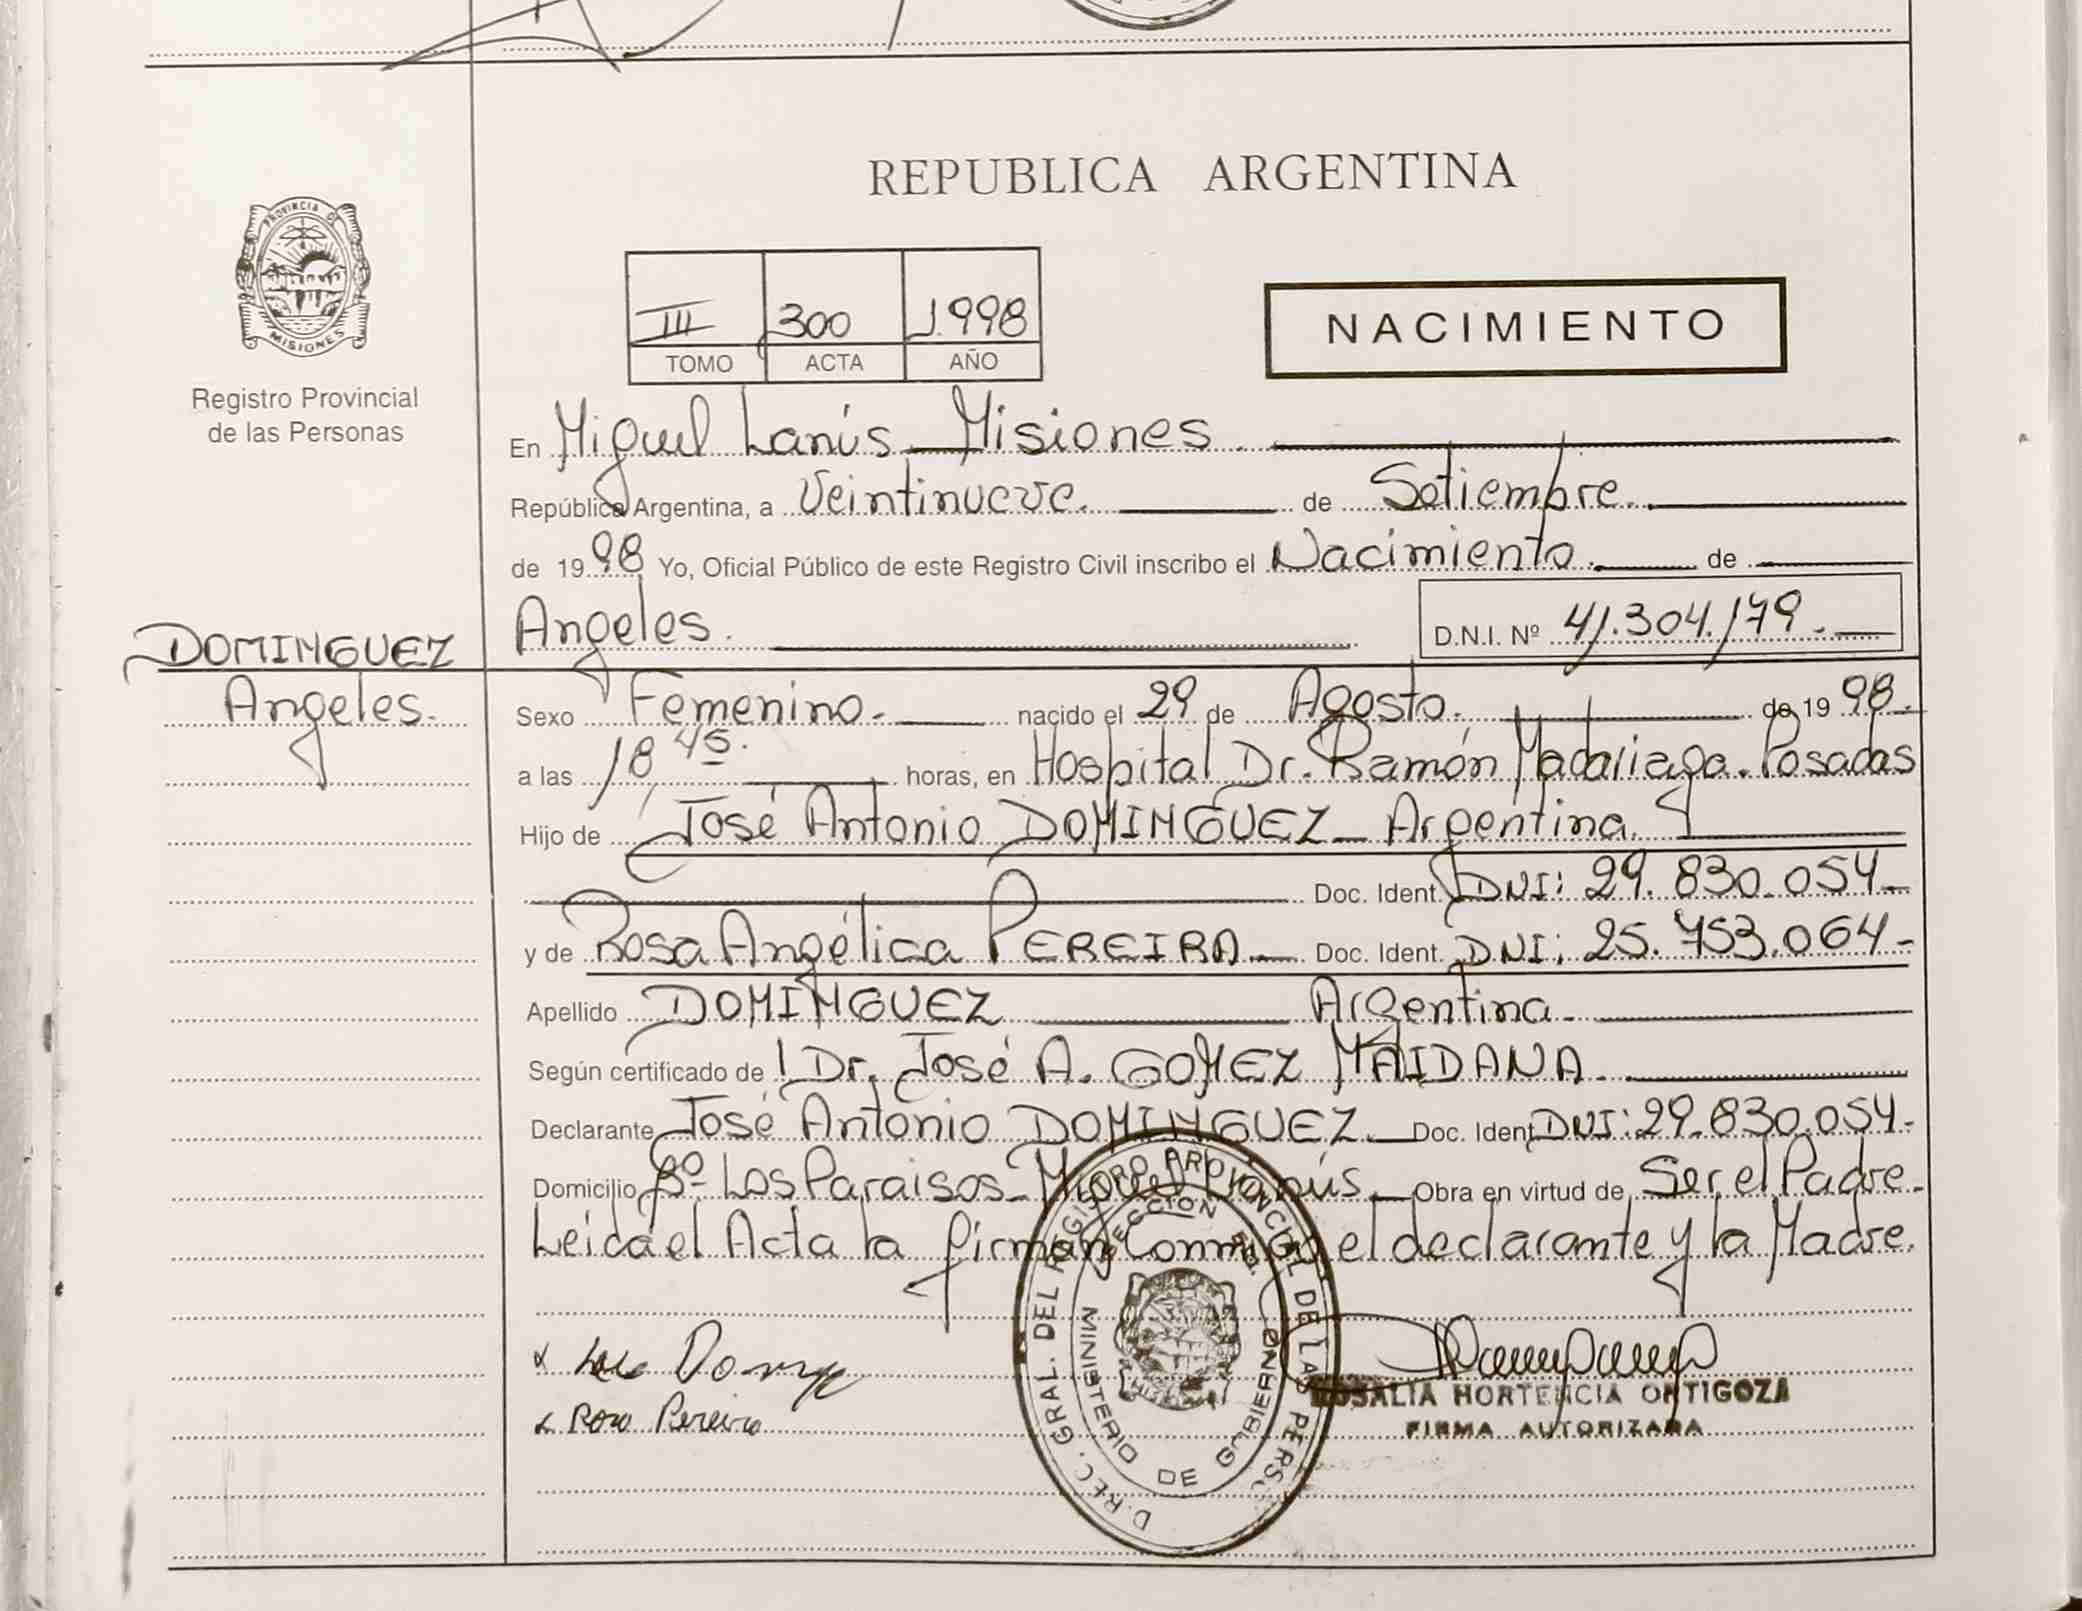 REPUBLICA ARGENTINA
PROVINCIA DE
MISIONES
Registro Provincial
de las Personas
III 300 1.998
TOMO ACTA AÑO
NACIMIENTO
En Miguel Lanús - Misiones.
República Argentina, a Veintinueve. de Setiembre.
de 1998 Yo, Oficial Público de este Registro Civil inscribo el Nacimiento. de
Angeles. D.N.I. Nº 41.304.179.
DOMINGUEZ
Angeles.
Sexo Femenino. nacido el 29 de Agosto. de 1998.
a las 18 45. horas, en Hospital Dr. Ramón Madariaga. Posadas
Hijo de José Antonio DOMINGUEZ - Argentina.
Doc. Ident. DNI: 29.830.054-
y de Rosa Angélica PEREIRA - Doc. Ident. DNI: 25.753.064-
Apellido DOMINGUEZ Argentina.
Según certificado de Dr. José A. GOMEZ MAIDANA.
Declarante José Antonio DOMINGUEZ. Doc. Ident. DNI: 29.830.054-
Domicilio Bº Los Paraisos - Miguel Lanús. Obra en virtud de Ser el Padre.
Leida el Acta la firman Conmigo el declarante y la Madre.
D.REC. GRAL. DEL REGISTRO PROVINCIAL DE LAS PERS.
MINISTERIO DE GOBIERNO
Rosa Pereira
ROSALIA HORTENCIA ORTIGOZA
FIRMA AUTORIZADA